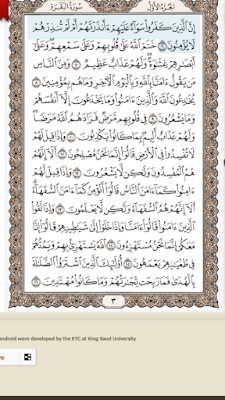 الجزء الأول سورة البقرة
إِنَّ الَّذِينَ كَفَرُوا سَوَاءٌ عَلَيْهِمْ ءَأَنذَرْتَهُمْ أَمْ لَمْ تُنذِرْهُمْ
لَا يُؤْمِنُونَ ٦ خَتَمَ اللَّهُ عَلَىٰ قُلُوبِهِمْ وَعَلَىٰ سَمْعِهِمْ وَعَلَىٰ
أَبْصَٰرِهِمْ غِشَٰوَةٌ وَلَهُمْ عَذَابٌ عَظِيمٌ ٧ وَمِنَ النَّاسِ
مَن يَقُولُ ءَامَنَّا بِاللَّهِ وَبِالْيَوْمِ الْءَاخِرِ وَمَا هُم بِمُؤْمِنِينَ ٨
يُخَٰدِعُونَ اللَّهَ وَالَّذِينَ ءَامَنُوا وَمَا يَخْدَعُونَ إِلَّا أَنفُسَهُمْ
وَمَا يَشْعُرُونَ ٩ فِي قُلُوبِهِم مَّرَضٌ فَزَادَهُمُ اللَّهُ مَرَضًا
وَلَهُمْ عَذَابٌ أَلِيمٌ بِمَا كَانُوا يَكْذِبُونَ ١٠ وَإِذَا قِيلَ لَهُمْ
لَا تُفْسِدُوا فِي الْأَرْضِ قَالُوا إِنَّمَا نَحْنُ مُصْلِحُونَ ١١ أَلَا إِنَّهُمْ
هُمُ الْمُفْسِدُونَ وَلَٰكِن لَّا يَشْعُرُونَ ١٢ وَإِذَا قِيلَ لَهُمْ
ءَامِنُوا كَمَا ءَامَنَ النَّاسُ قَالُوا أَنُؤْمِنُ كَمَا ءَامَنَ السُّفَهَاءُ
أَلَا إِنَّهُمْ هُمُ السُّفَهَاءُ وَلَٰكِن لَّا يَعْلَمُونَ ١٣ وَإِذَا لَقُوا
الَّذِينَ ءَامَنُوا قَالُوا ءَامَنَّا وَإِذَا خَلَوْا إِلَىٰ شَيَٰطِينِهِمْ قَالُوا إِنَّا
مَعَكُمْ إِنَّمَا نَحْنُ مُسْتَهْزِءُونَ ١٤ اللَّهُ يَسْتَهْزِئُ بِهِمْ وَيَمُدُّهُمْ
فِي طُغْيَٰنِهِمْ يَعْمَهُونَ ١٥ أُولَٰئِكَ الَّذِينَ اشْتَرَوُا الضَّلَٰلَةَ
بِالْهُدَىٰ فَمَا رَبِحَت تِّجَٰرَتُهُمْ وَمَا كَانُوا مُهْتَدِينَ ١٦
٣
android were developed by the ETC at King Saud University